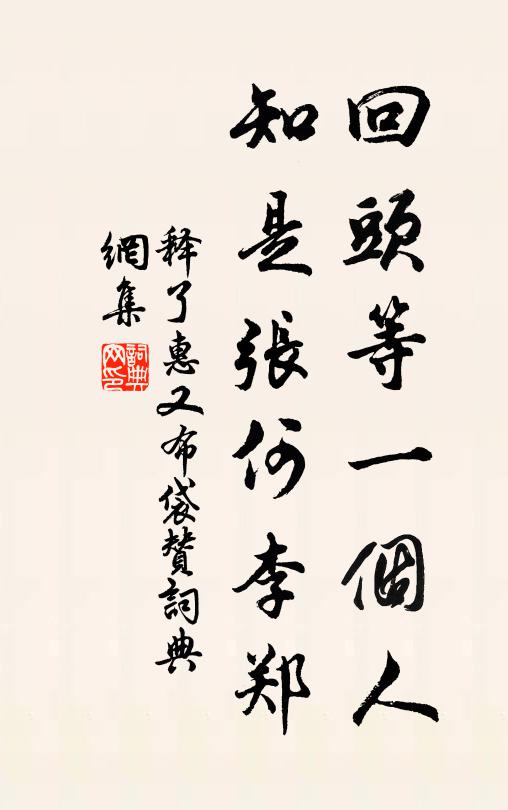 回頭等一個人
知是張何李郑
释了惠又布袋賛詞典
網集
詞典
网印